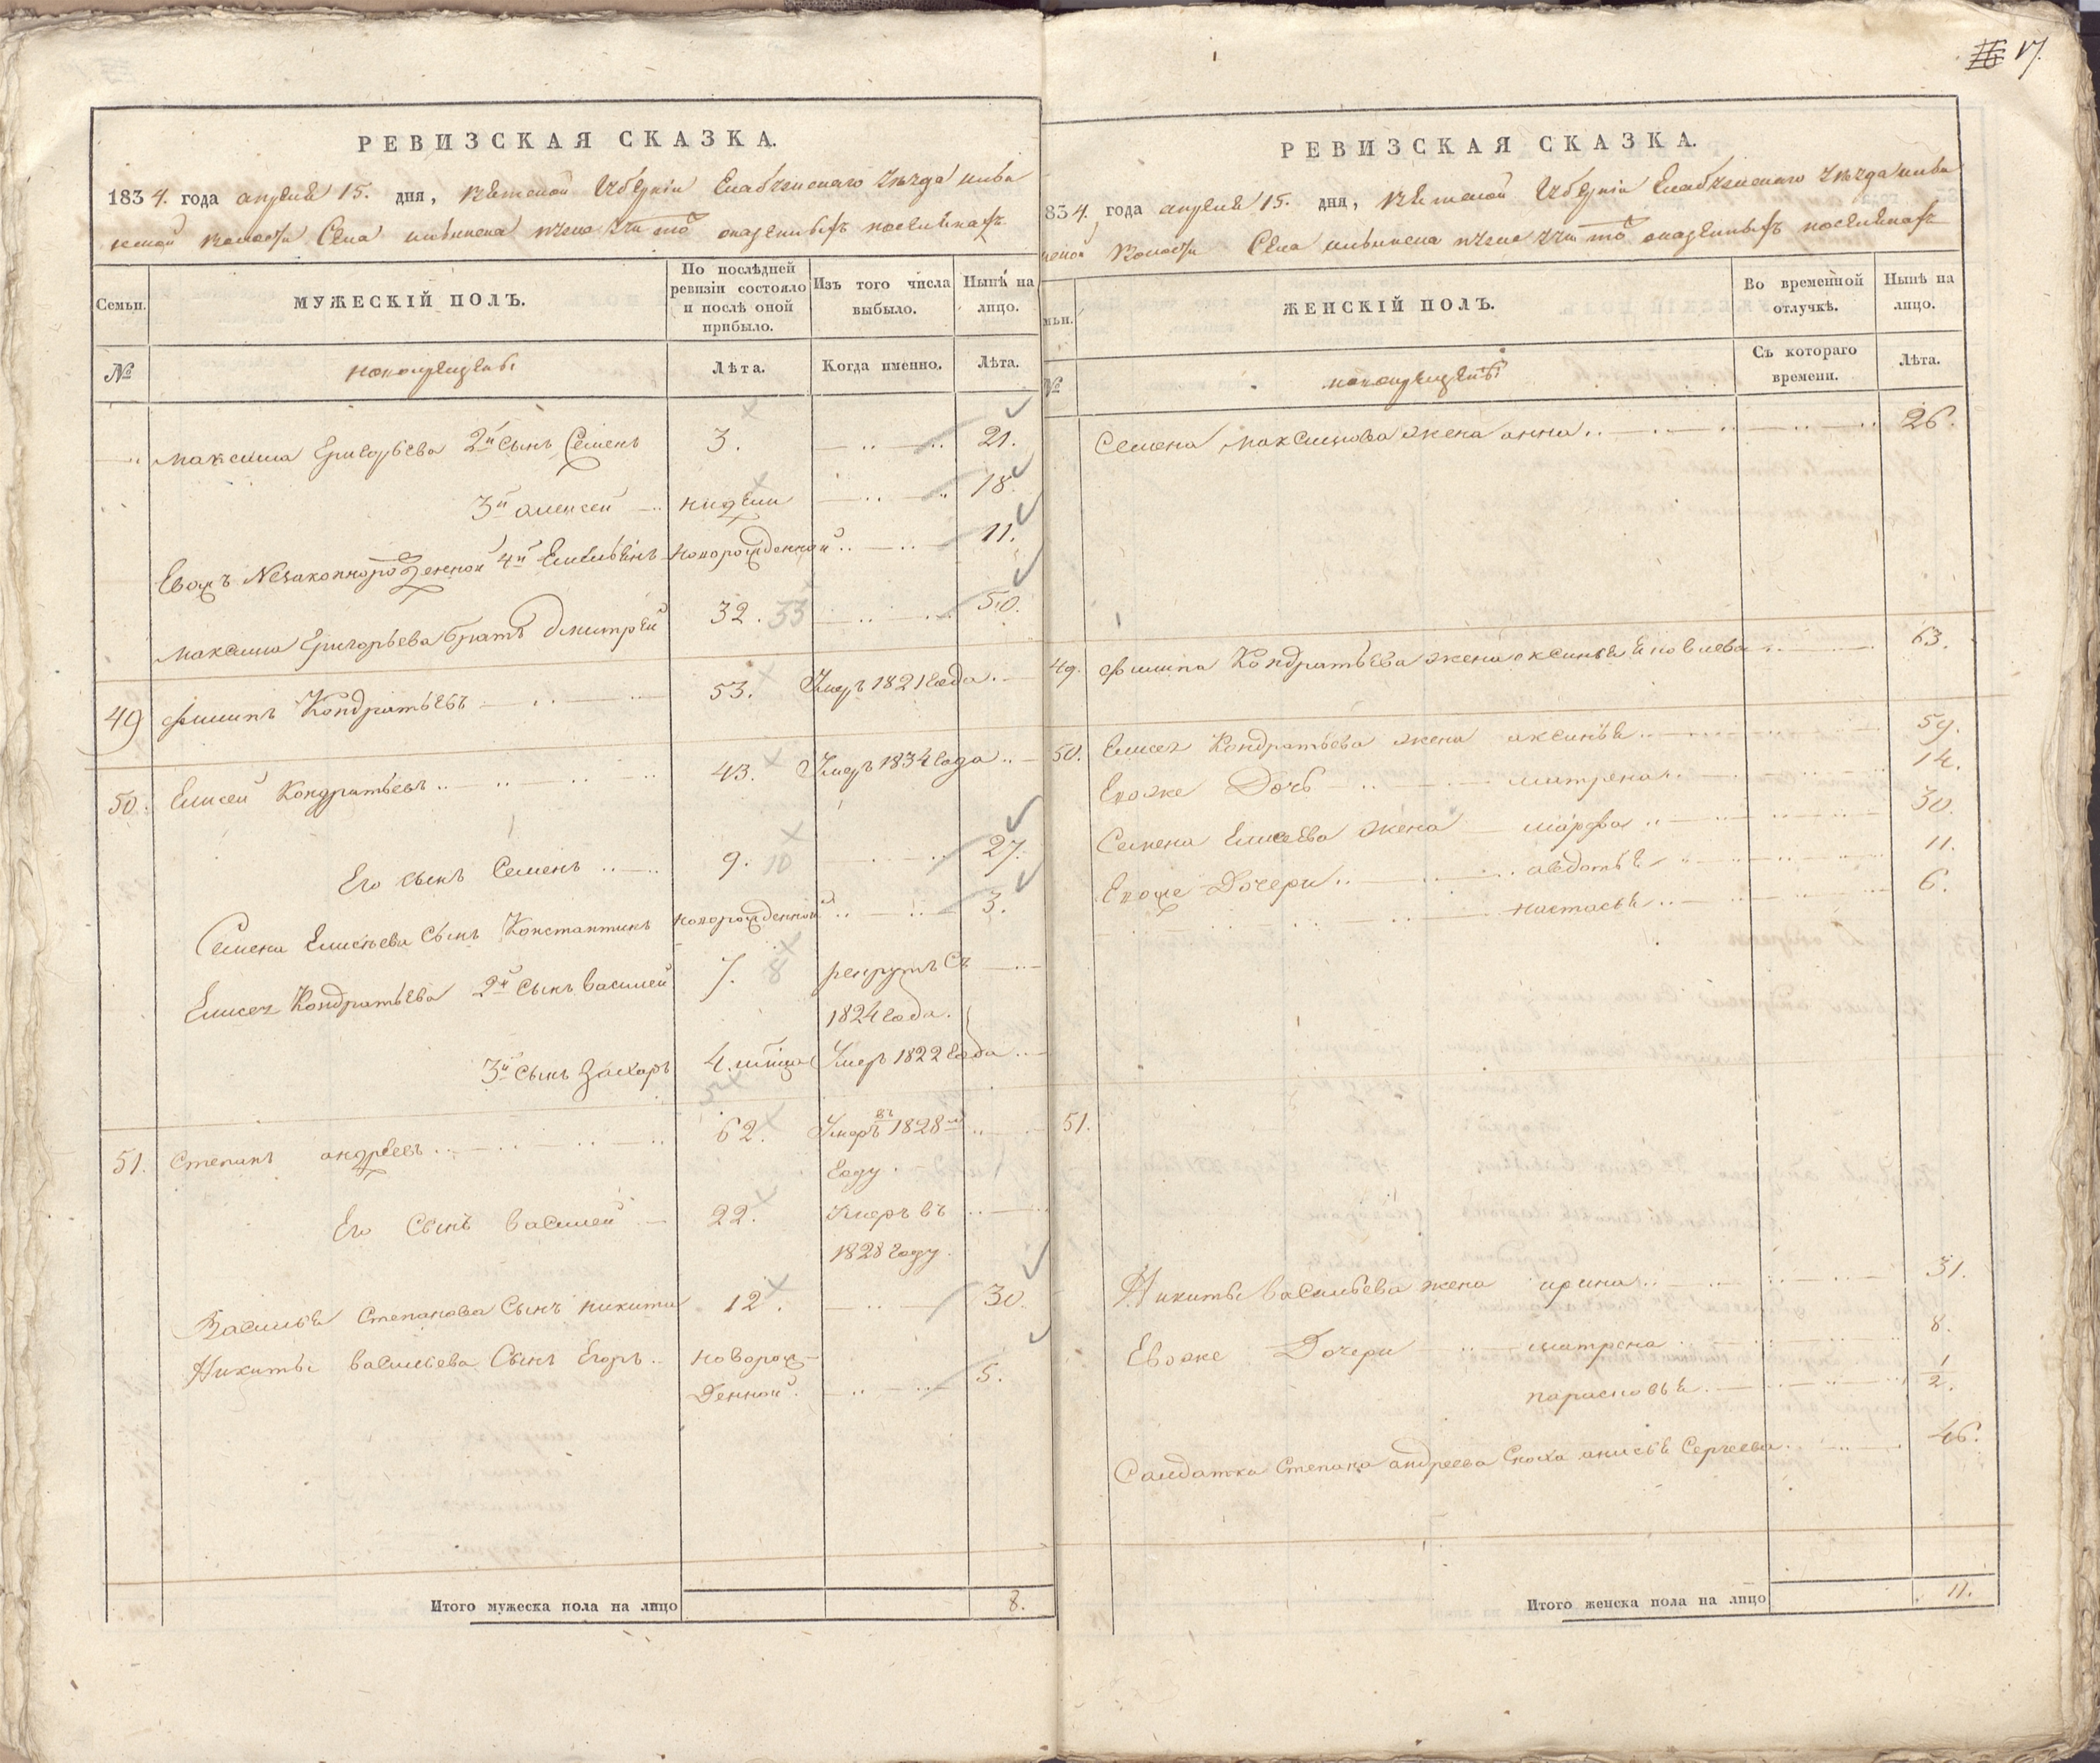 РЕВИЗСКАЯ СКАЗКА.
1834. года апреля 15. дня, Вятской Губернии Елабужскаго Уезда
Волости Села
Семьи.
МУЖЕСКІЙ ПОЛЪ.
По послѣдней ревизіи состояло и послѣ оной прибыло.
Изъ того числа выбыло.
Нынѣ на лицо.
№
новокрещены
Лѣта.
Когда именно.
Лѣта.
Максима Григорьева 2й Сынъ Семенъ 3. 21.
3й алексей недели 18.
Евожъ Незаконнорожденной 4й Емельянъ новорожденной 11.
Максима Григорьева братъ Дмитрей 32. 33 50.
49 Филипъ Кондратьевъ 53. Умеръ 1821 года
50. Елисей Кондратьевъ 43. Умеръ 1834 года
Его сынъ Семенъ 9. 10 27.
Семена Елисеева Сынъ Константинъ новорожденной 3.
Елисея Кондратьева 2й Сынъ Василей 7. 8 рекрутъ съ
1824 года.
3й Сынъ Захаръ 4. Умеръ 1822 года
51. Степанъ андреевъ 62. Умеръ въ 1828м
году.
Его Сынъ Василей 22. Умеръ въ
1828 году.
Василья Степанова Сынъ Никита 12. 30.
Никиты Васильева Сынъ Егоръ новорож-
денной 5.
Итого мужеска пола на лицо 8.
17.
РЕВИЗСКАЯ СКАЗКА.
834. года апреля 15. дня, Вятской Губернии Елабужскаго Уезда
Волости Села
мьи.
ЖЕНСКІЙ ПОЛЪ.
Во временной отлучкѣ.
Нынѣ на лицо.
№
новокрещены
Съ котораго времени.
Лѣта.
Семена Максимова жена анна 26.
49. Филипа Кондратьева жена оксинья 63.
50. Елисея Кондратьева жена аксинья 59.
Евоже Дочь матрена 14.
Семена Елисеева жена марфа 30.
Евоже Дочери авдотья 11.
настасья 6.
51.
Никиты Васильева жена ирина 31.
Евоже Дочери матрена 8.
парасковья 1/2.
Салдатка Степана андреева Сноха анисья Сергеева 46.
Итого женска пола на лицо 11.